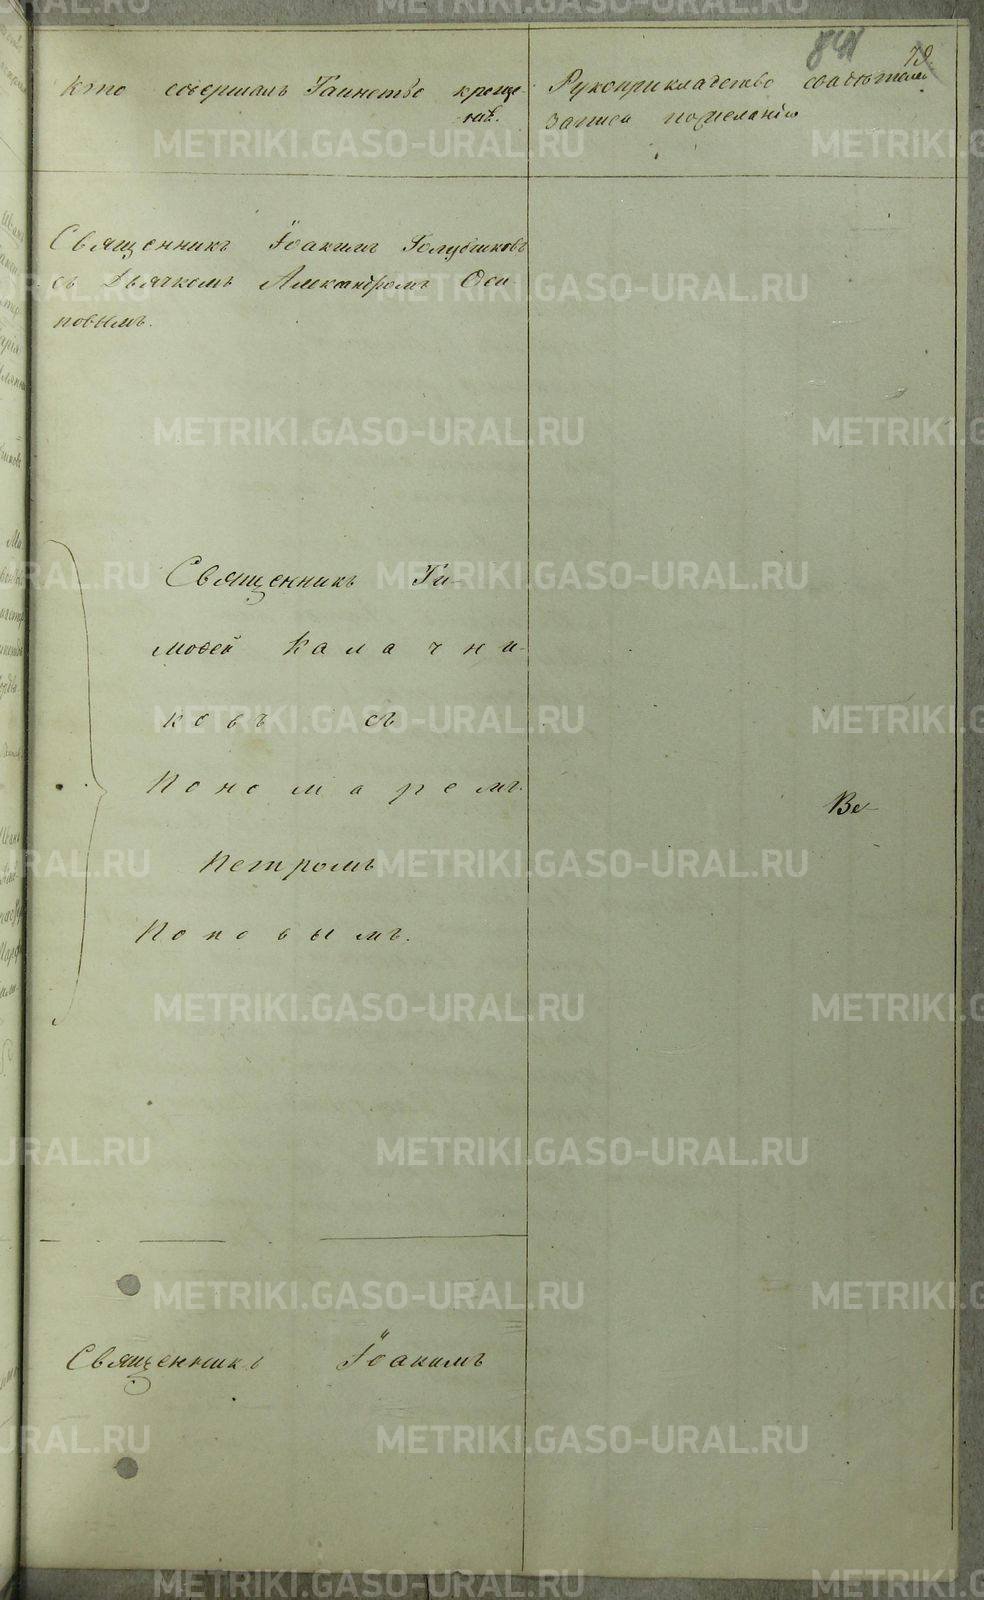 841 79.
Кто совершалъ Таинство креще-
нія.
Рукоприкладство свидѣтелей
записи по желанію
Священникъ Іоакимъ Голубчиковъ
съ Дьячкомъ Александромъ Оси
повымъ.
Священникъ Ти-
мофей Калачни-
ковъ съ
Пономаремъ
Петромъ
Поповымъ.
Ве-
Священникъ Іоакимъ
METRIKI.GASO-URAL.RU